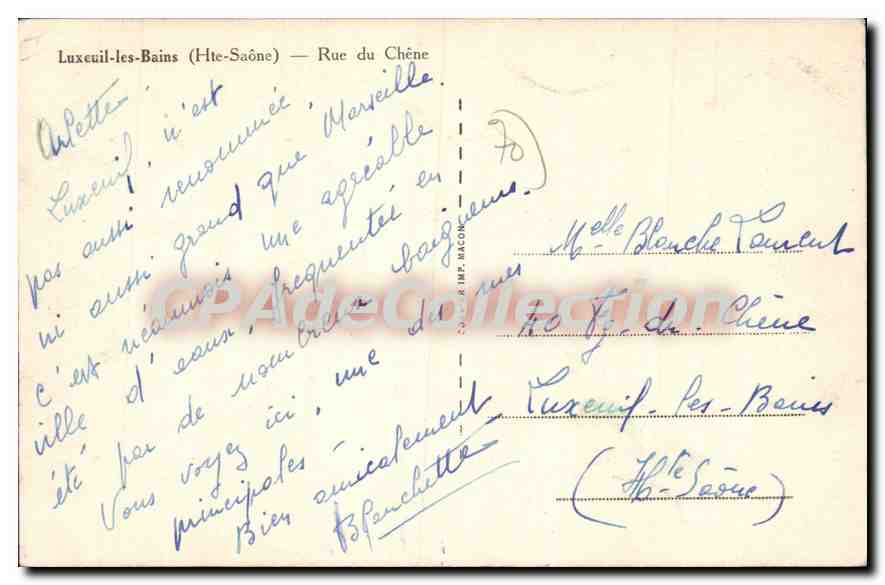 Luxeuil-les-Bains (Hte-Saône) — Rue du Chêne
Arlette
Luxeuil, n'est
pas aussi renommée,
ni aussi grand que Marseille.
c'est néanmois une agréable
ville d'eaux, fréquentés en
été par de nombreux baigneurs.
Vous voyez ici, une des rues
principales -
Bien amicalement
Blanchette
70
IMP. MACON
Melle Blanche Laurent
40 Fg. du. Chêne
Luxeuil-les-Bains
(Hte Saône)
CPAdeCollection